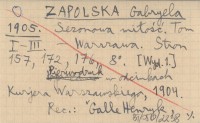 ZAPOLSKA Gabryela
1905. Sezonowa miłość. Tom
I-III. — Warszawa. Stron
157, 172, 176, 8°. [Wyd. 1.]
Pierwodruk — odcinkach
Kuryera Warszawskiego, 1904.
Rec.: Galle Henryk